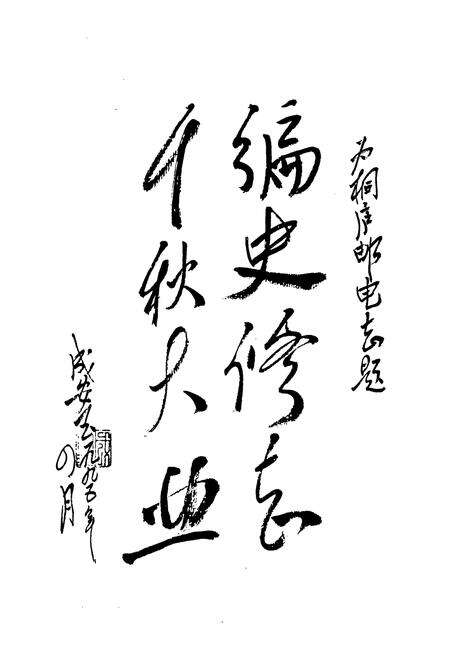 为桐庐邮电志题
编史修志
千秋大业
成安玉
一九九五年
四月